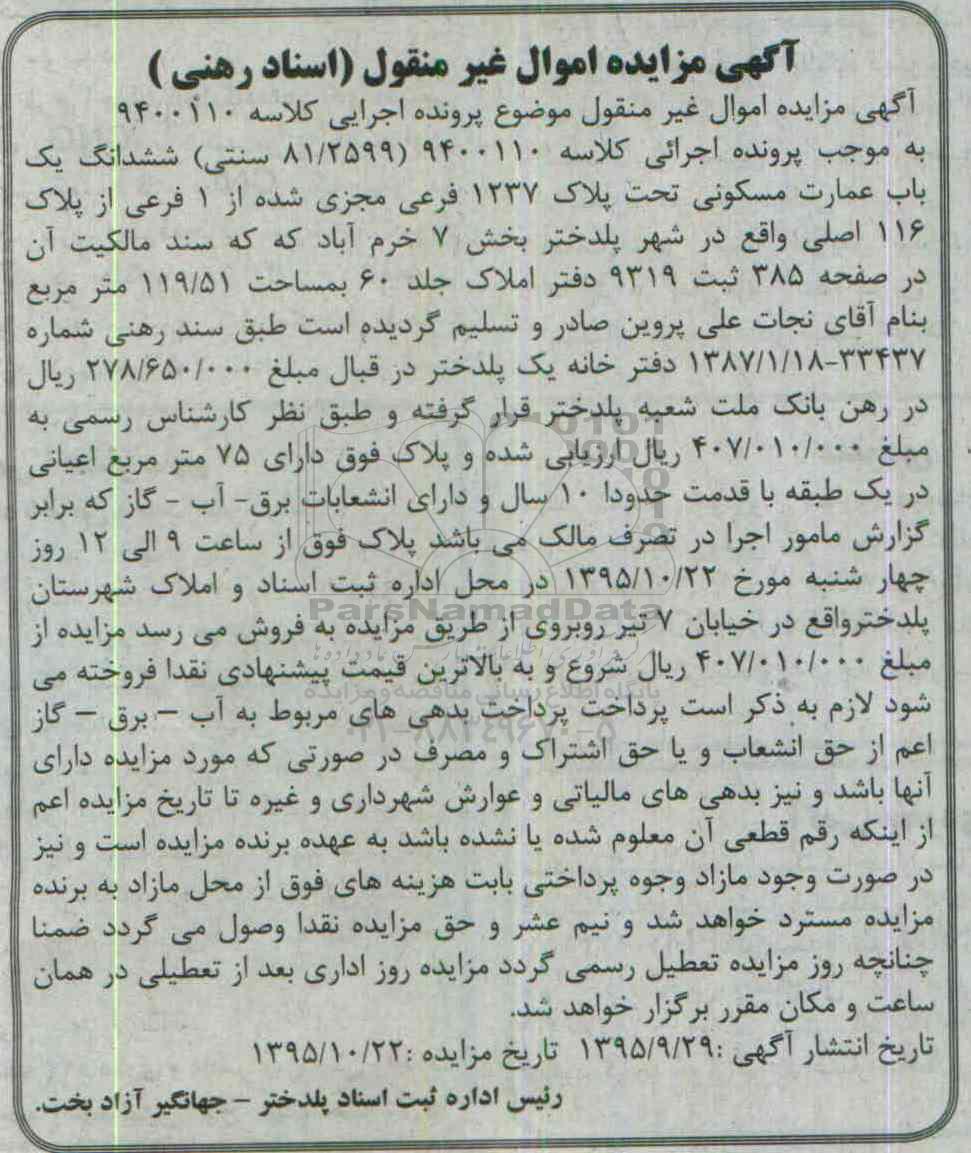 آگهی مزایده اموال غیر منقول (اسناد رهنی)
آگهی مزایده اموال غیر منقول موضوع پرونده اجرایی کلاسه ۹۴۰۰۱۱۰
به موجب پرونده اجرائی کلاسه ۹۴۰۰۱۱۰ (۸۱/۲۵۹۹ سنتی) ششدانگ یک
باب عمارت مسکونی تحت پلاک ۱۲۳۷ فرعی مجزی شده از ۱ فرعی از پلاک
۱۱۶ اصلی واقع در شهر پلدختر بخش ۷ خرم آباد که که سند مالکیت آن
در صفحه ۳۸۵ ثبت ۹۳۱۹ دفتر املاک جلد ۶۰ بمساحت ۱۱۹/۵۱ متر مربع
بنام آقای نجات علی پروین صادر و تسلیم گردیده است طبق سند رهنی شماره
۳۳۴۳۷-۱۳۸۷/۱/۱۸ دفتر خانه یک پلدختر در قبال مبلغ ۲۷۸/۶۵۰/۰۰۰ ریال
در رهن بانک ملت شعبه پلدختر قرار گرفته و طبق نظر کارشناس رسمی به
مبلغ ۴۰۷/۰۱۰/۰۰۰ ریال ارزیابی شده و پلاک فوق دارای ۷۵ متر مربع اعیانی
در یک طبقه با قدمت حدودا ۱۰ سال و دارای انشعابات برق- آب - گاز که برابر
گزارش مامور اجرا در تصرف مالک می باشد پلاک فوق از ساعت ۹ الی ۱۲ روز
چهار شنبه مورخ ۱۳۹۵/۱۰/۲۲ در محل اداره ثبت اسناد و املاک شهرستان
ParsNamadData
پلدخترواقع در خیابان ۷ تیر روبروی از طریق مزایده به فروش می رسد مزایده از
مبلغ ۴۰۷/۰۱۰/۰۰۰ ریال شروع و به بالاترین قیمت پیشنهادی نقدا فروخته می
پایگاه اطلاع رسانی مناقصه و مزایده
شود لازم به ذکر است پرداخت پرداخت بدهی های مربوط به آب – برق – گاز
۰۲۱-۸۸۳۴۹۶۷۰-۵
اعم از حق انشعاب و یا حق اشتراک و مصرف در صورتی که مورد مزایده دارای
آنها باشد و نیز بدهی های مالیاتی و عوارش شهرداری و غیره تا تاریخ مزایده اعم
از اینکه رقم قطعی آن معلوم شده یا نشده باشد به عهده برنده مزایده است و نیز
در صورت وجود مازاد وجوه پرداختی بابت هزینه های فوق از محل مازاد به برنده
مزایده مسترد خواهد شد و نیم عشر و حق مزایده نقدا وصول می گردد ضمنا
چنانچه روز مزایده تعطیل رسمی گردد مزایده روز اداری بعد از تعطیلی در همان
ساعت و مکان مقرر برگزار خواهد شد.
تاریخ انتشار آگهی :۱۳۹۵/۹/۲۹ تاریخ مزایده :۱۳۹۵/۱۰/۲۲
رئیس اداره ثبت اسناد پلدختر – جهانگیر آزاد بخت.